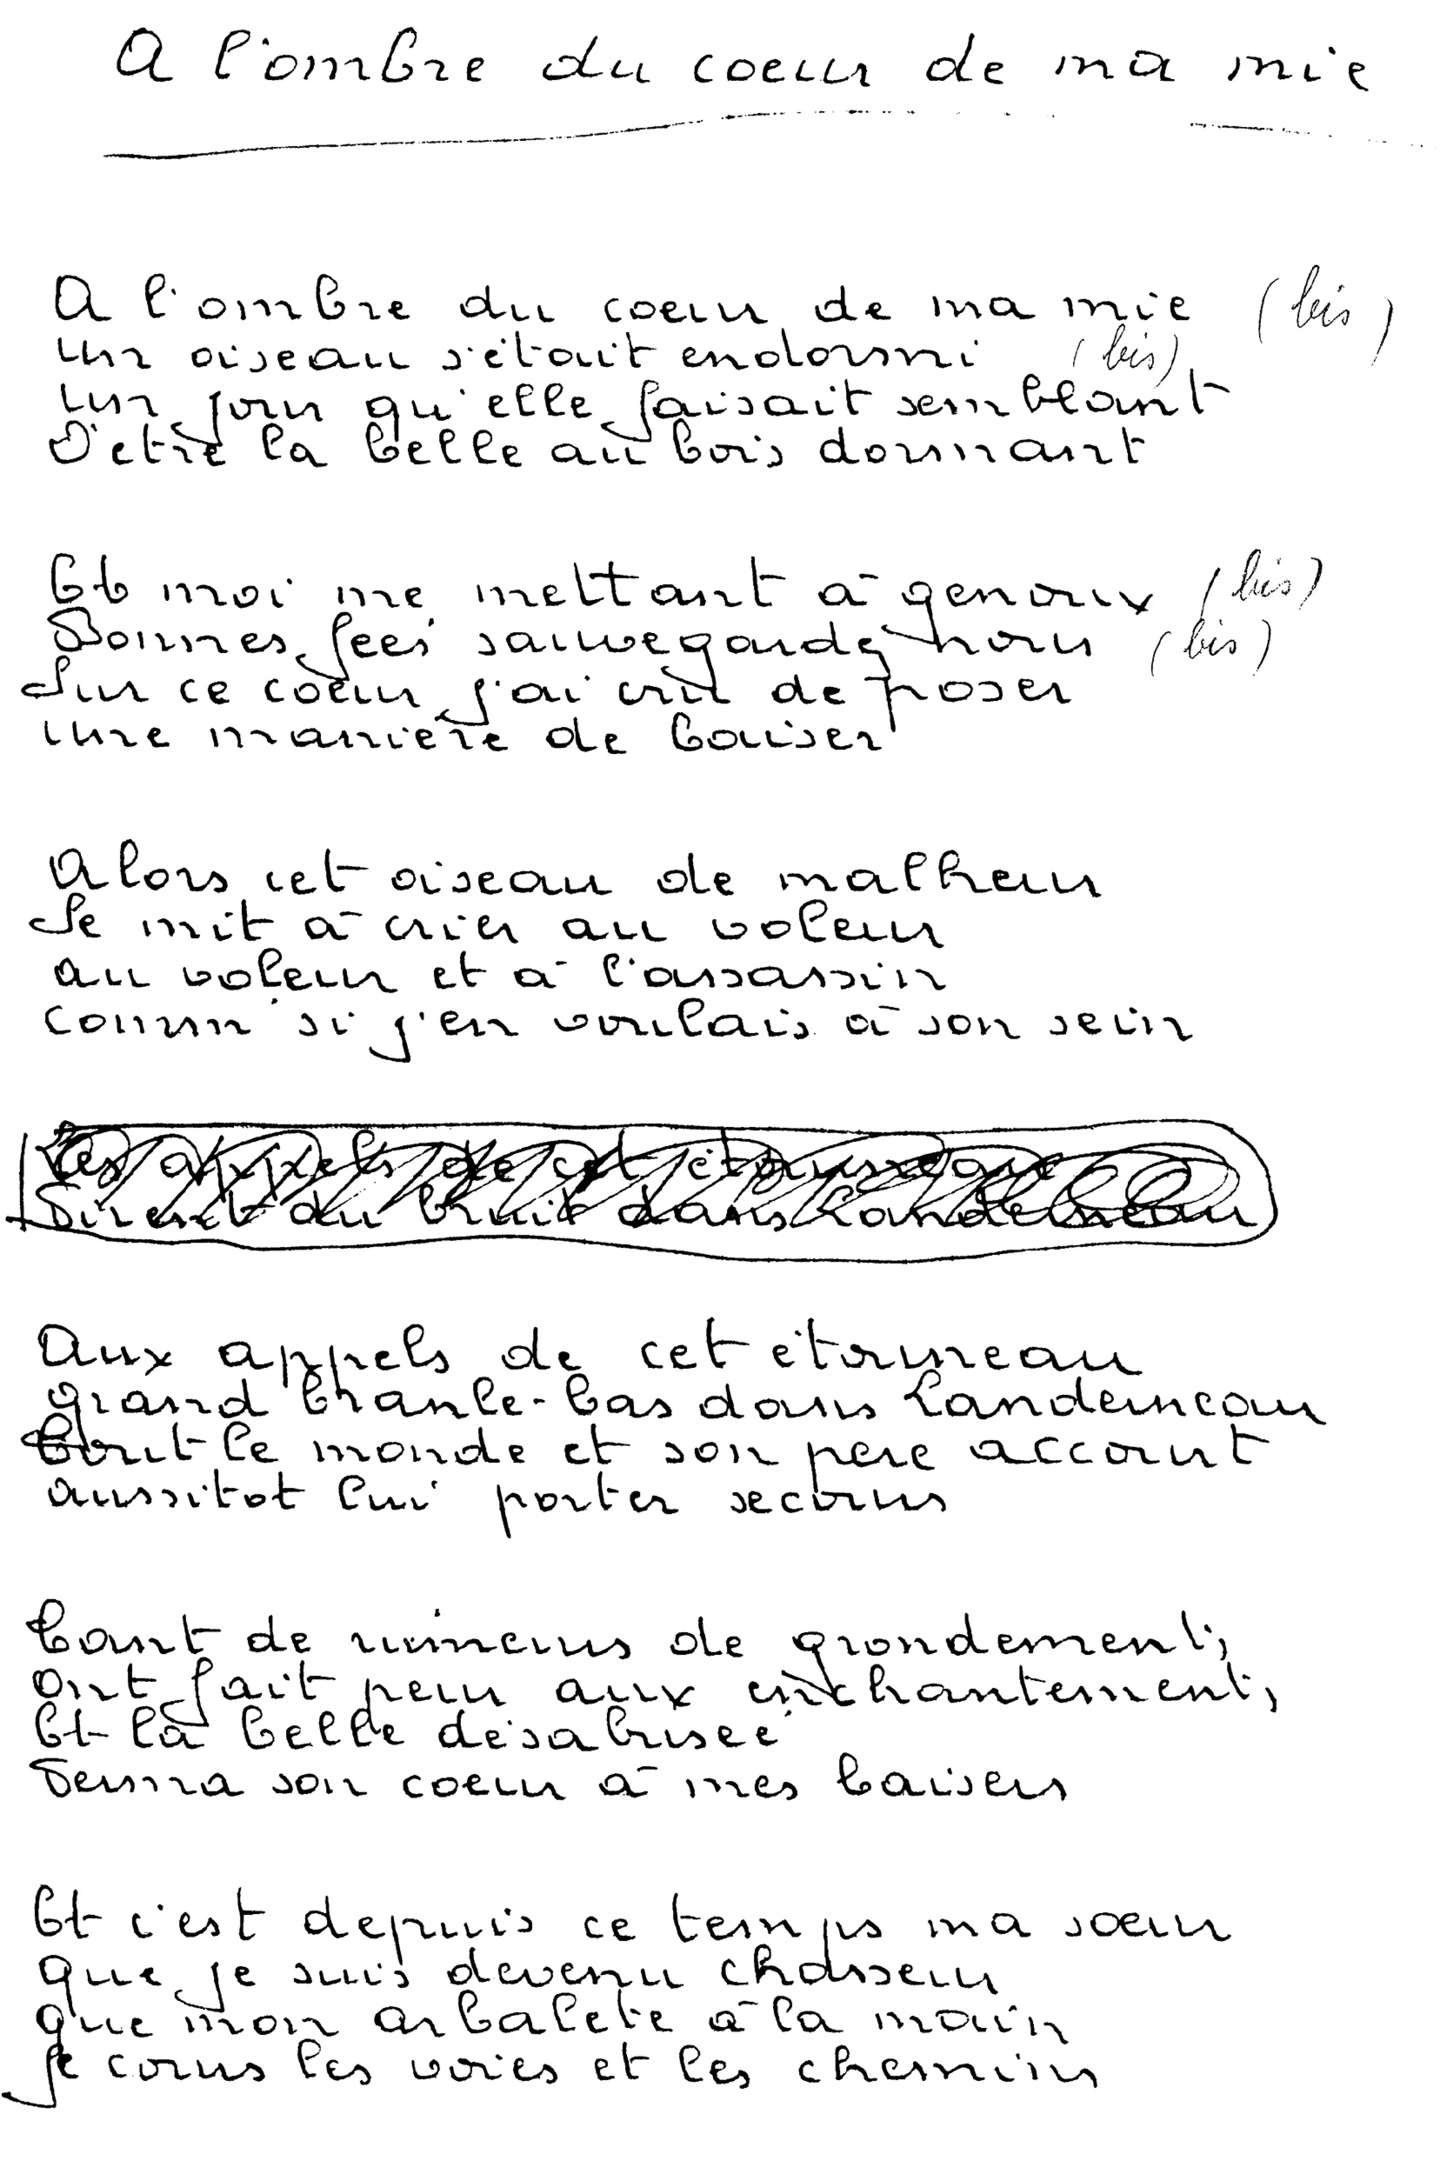 A l'ombre du coeur de ma mie
A l'ombre du coeur de ma mie (bis)
un oiseau s'était endormi (bis)
un jour qu'elle faisait semblant
D'etre la belle au bois dormant
Et moi me mettant à genoux (bis)
Bonnes fées sauvegardez nous (bis)
Sur ce coeur j'ai cru de poser
une manière de baiser
Alors cet oiseau de malheur
Se mit à crier au voleur
au voleur et à l'assassin
comm' si j'en voulais à son sein
Les appels de cet étourneau
Firent du bruit dans Landerneau
Aux appels de cet étourneau
grand branle-bas dans Landerneau
Tout le monde et son pere accourt
aussitot lui porter secours
Tant de rumeurs de grondements
ont fait peur aux enchantements
Et la belle désabusée
Ferma son coeur à mes baisers
Et c'est depuis ce temps ma soeur
que je suis devenu chasseur
que mon arbalete à la main
je cours les voies et les chemins